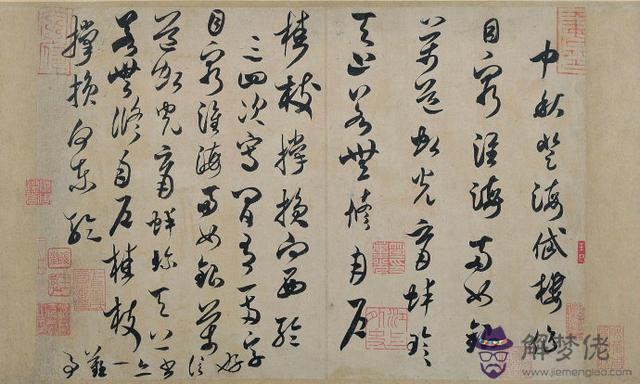 中秋登海岱樓作
目窮淮海兩如銀
萬道虹光育蚌珍
天上若無修月戶
桂枝撐損向西輪
三四次寫間有一兩字
好信書亦一難事
目窮淮海兩如銀萬
道虹光育蚌珍天上
若無修月戶桂枝
撐損向東輪
解梦佬
www.jiemenglao.com